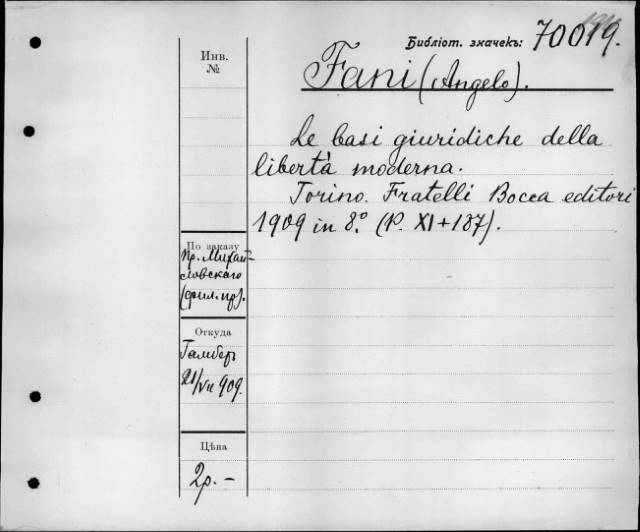 Библіот. значекъ: 70019.
Инв.
№
Fani (Angelo).
Le basi giuridiche della
libertà moderna.
Torino. Fratelli Bocca editori
1909 in 8.° (P. XI+187).
По заказу
пр. Михай-
ловскаго
Откуда
909.
Цѣна
2р. –